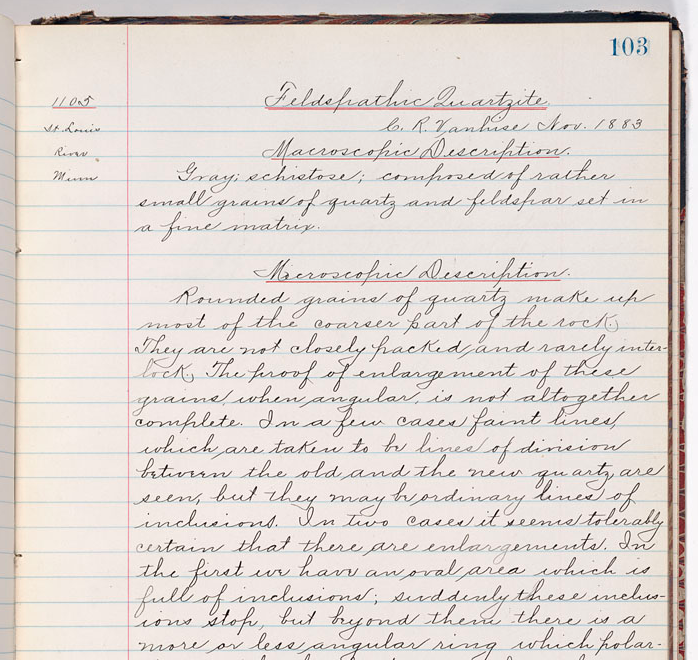 103
1105
St. Louis
River
Minn
Feldspathic Quartzite
C. R. Vanhise Nov. 1883
Macroscopic Description.
Gray; schistose; composed of rather
small grains of quartz and feldspar set in
a fine matrix.
Microscopic Description.
Rounded grains of quartz make up
most of the coarser part of the rock.
They are not closely packed and rarely inter-
lock. The proof of enlargement of these
grains, when angular, is not altogether
complete. In a few cases faint lines,
which are taken to be lines of division
between the old and the new quartz are
seen, but they may be ordinary lines of
inclusions. In two cases it seems tolerably
certain that there are enlargements. In
the first we have an oval area which is
full of inclusions; suddenly these inclus-
ions stop, but beyond them there is a
more or less angular ring which polar-